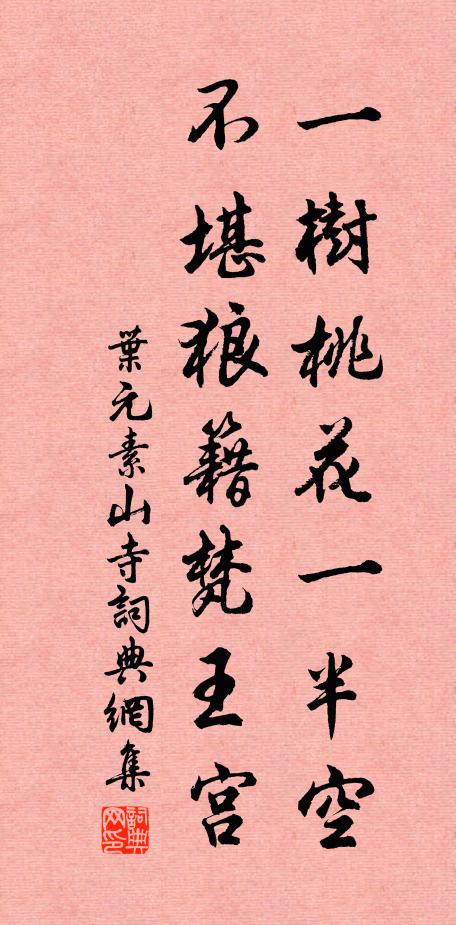 一樹桃花一半空
不堪狼籍梵王宮
葉元素山寺詞典網集
詞典网印